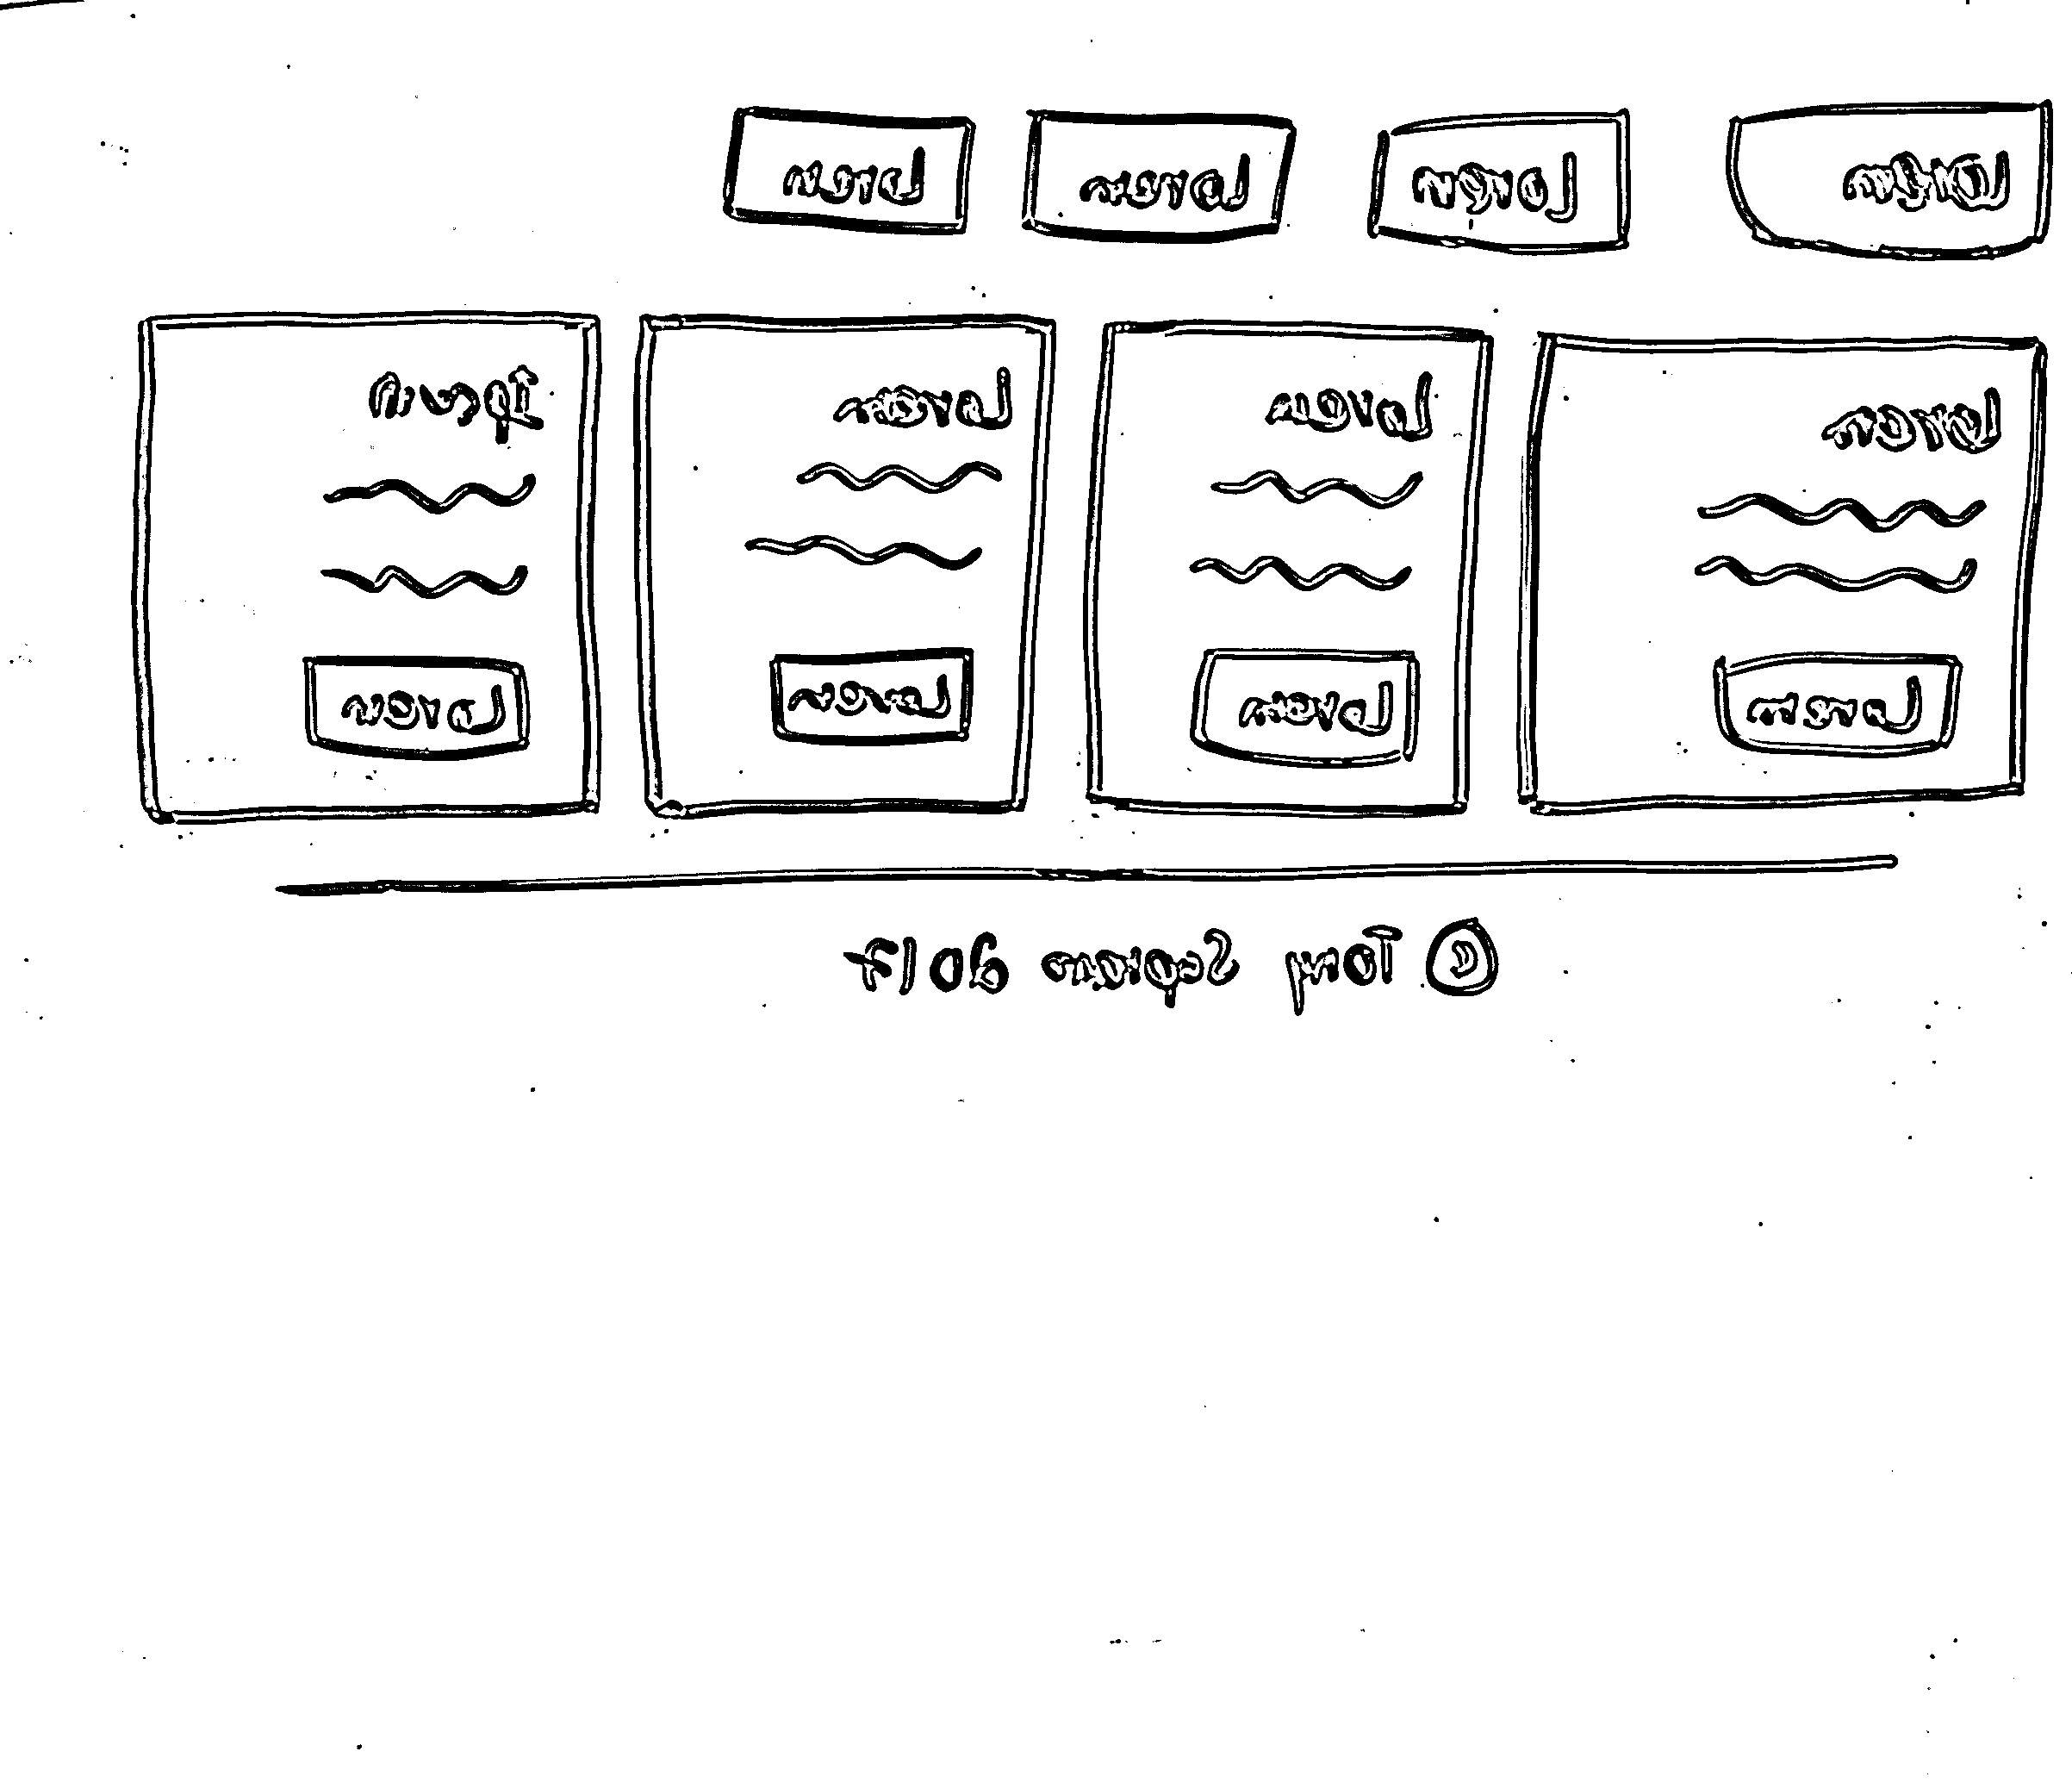 Lorem Lorem Lorem Lorem
Lorem Lorem Lorem Ipsum
Lorem Lorem Lorem Lorem
© Tony Sopiano 2017